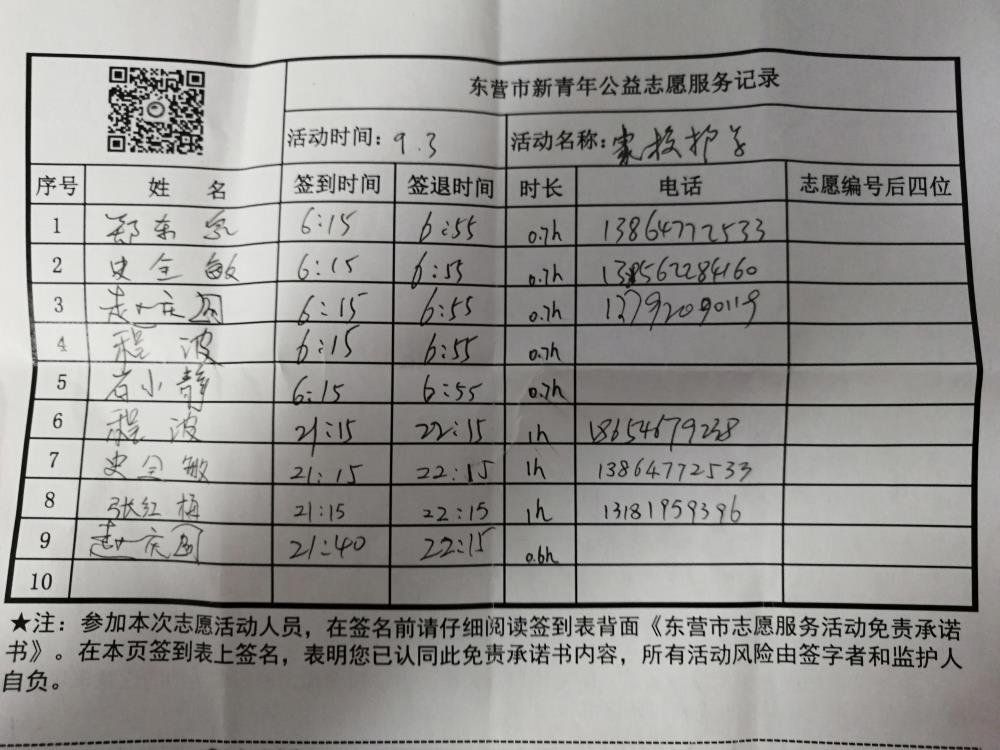 东营市新青年公益志愿服务记录
活动时间：9.3 活动名称：家校护学
序号 姓 名 签到时间 签退时间 时长 电话 志愿编号后四位
1 郑东 6:15 6:55 0.7h 13864772533
2 史全敏 6:15 6:55 0.7h 138562284160
3 赵庆国 6:15 6:55 0.7h 13792090119
4 程波 6:15 6:55 0.7h
5 石小静 6:15 6:55 0.7h
6 程波 21:15 22:15 1h 18654679238
7 史全敏 21:15 22:15 1h 13864772533
8 张红梅 21:15 22:15 1h 13181959396
9 赵庆国 21:40 22:15 0.6h
10
★注：参加本次志愿活动人员，在签名前请仔细阅读签到表背面《东营市志愿服务活动免责承诺
书》。在本页签到表上签名，表明您已认同此免责承诺书内容，所有活动风险由签字者和监护人
自负。